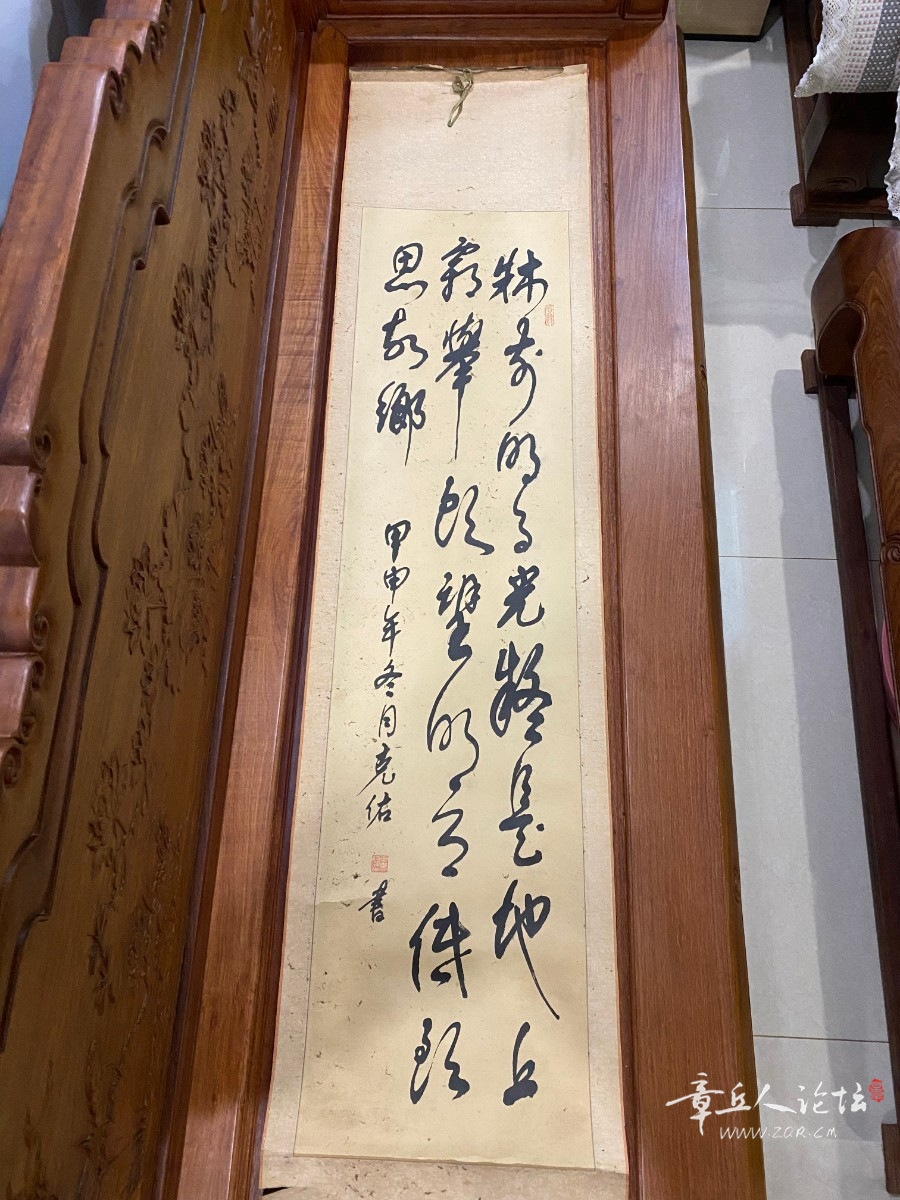 牀前明月光疑是地上
霜舉頭望明月低頭
思故鄉
甲申年冬月克佑書
章丘人论坛
WWW.ZQR.CM